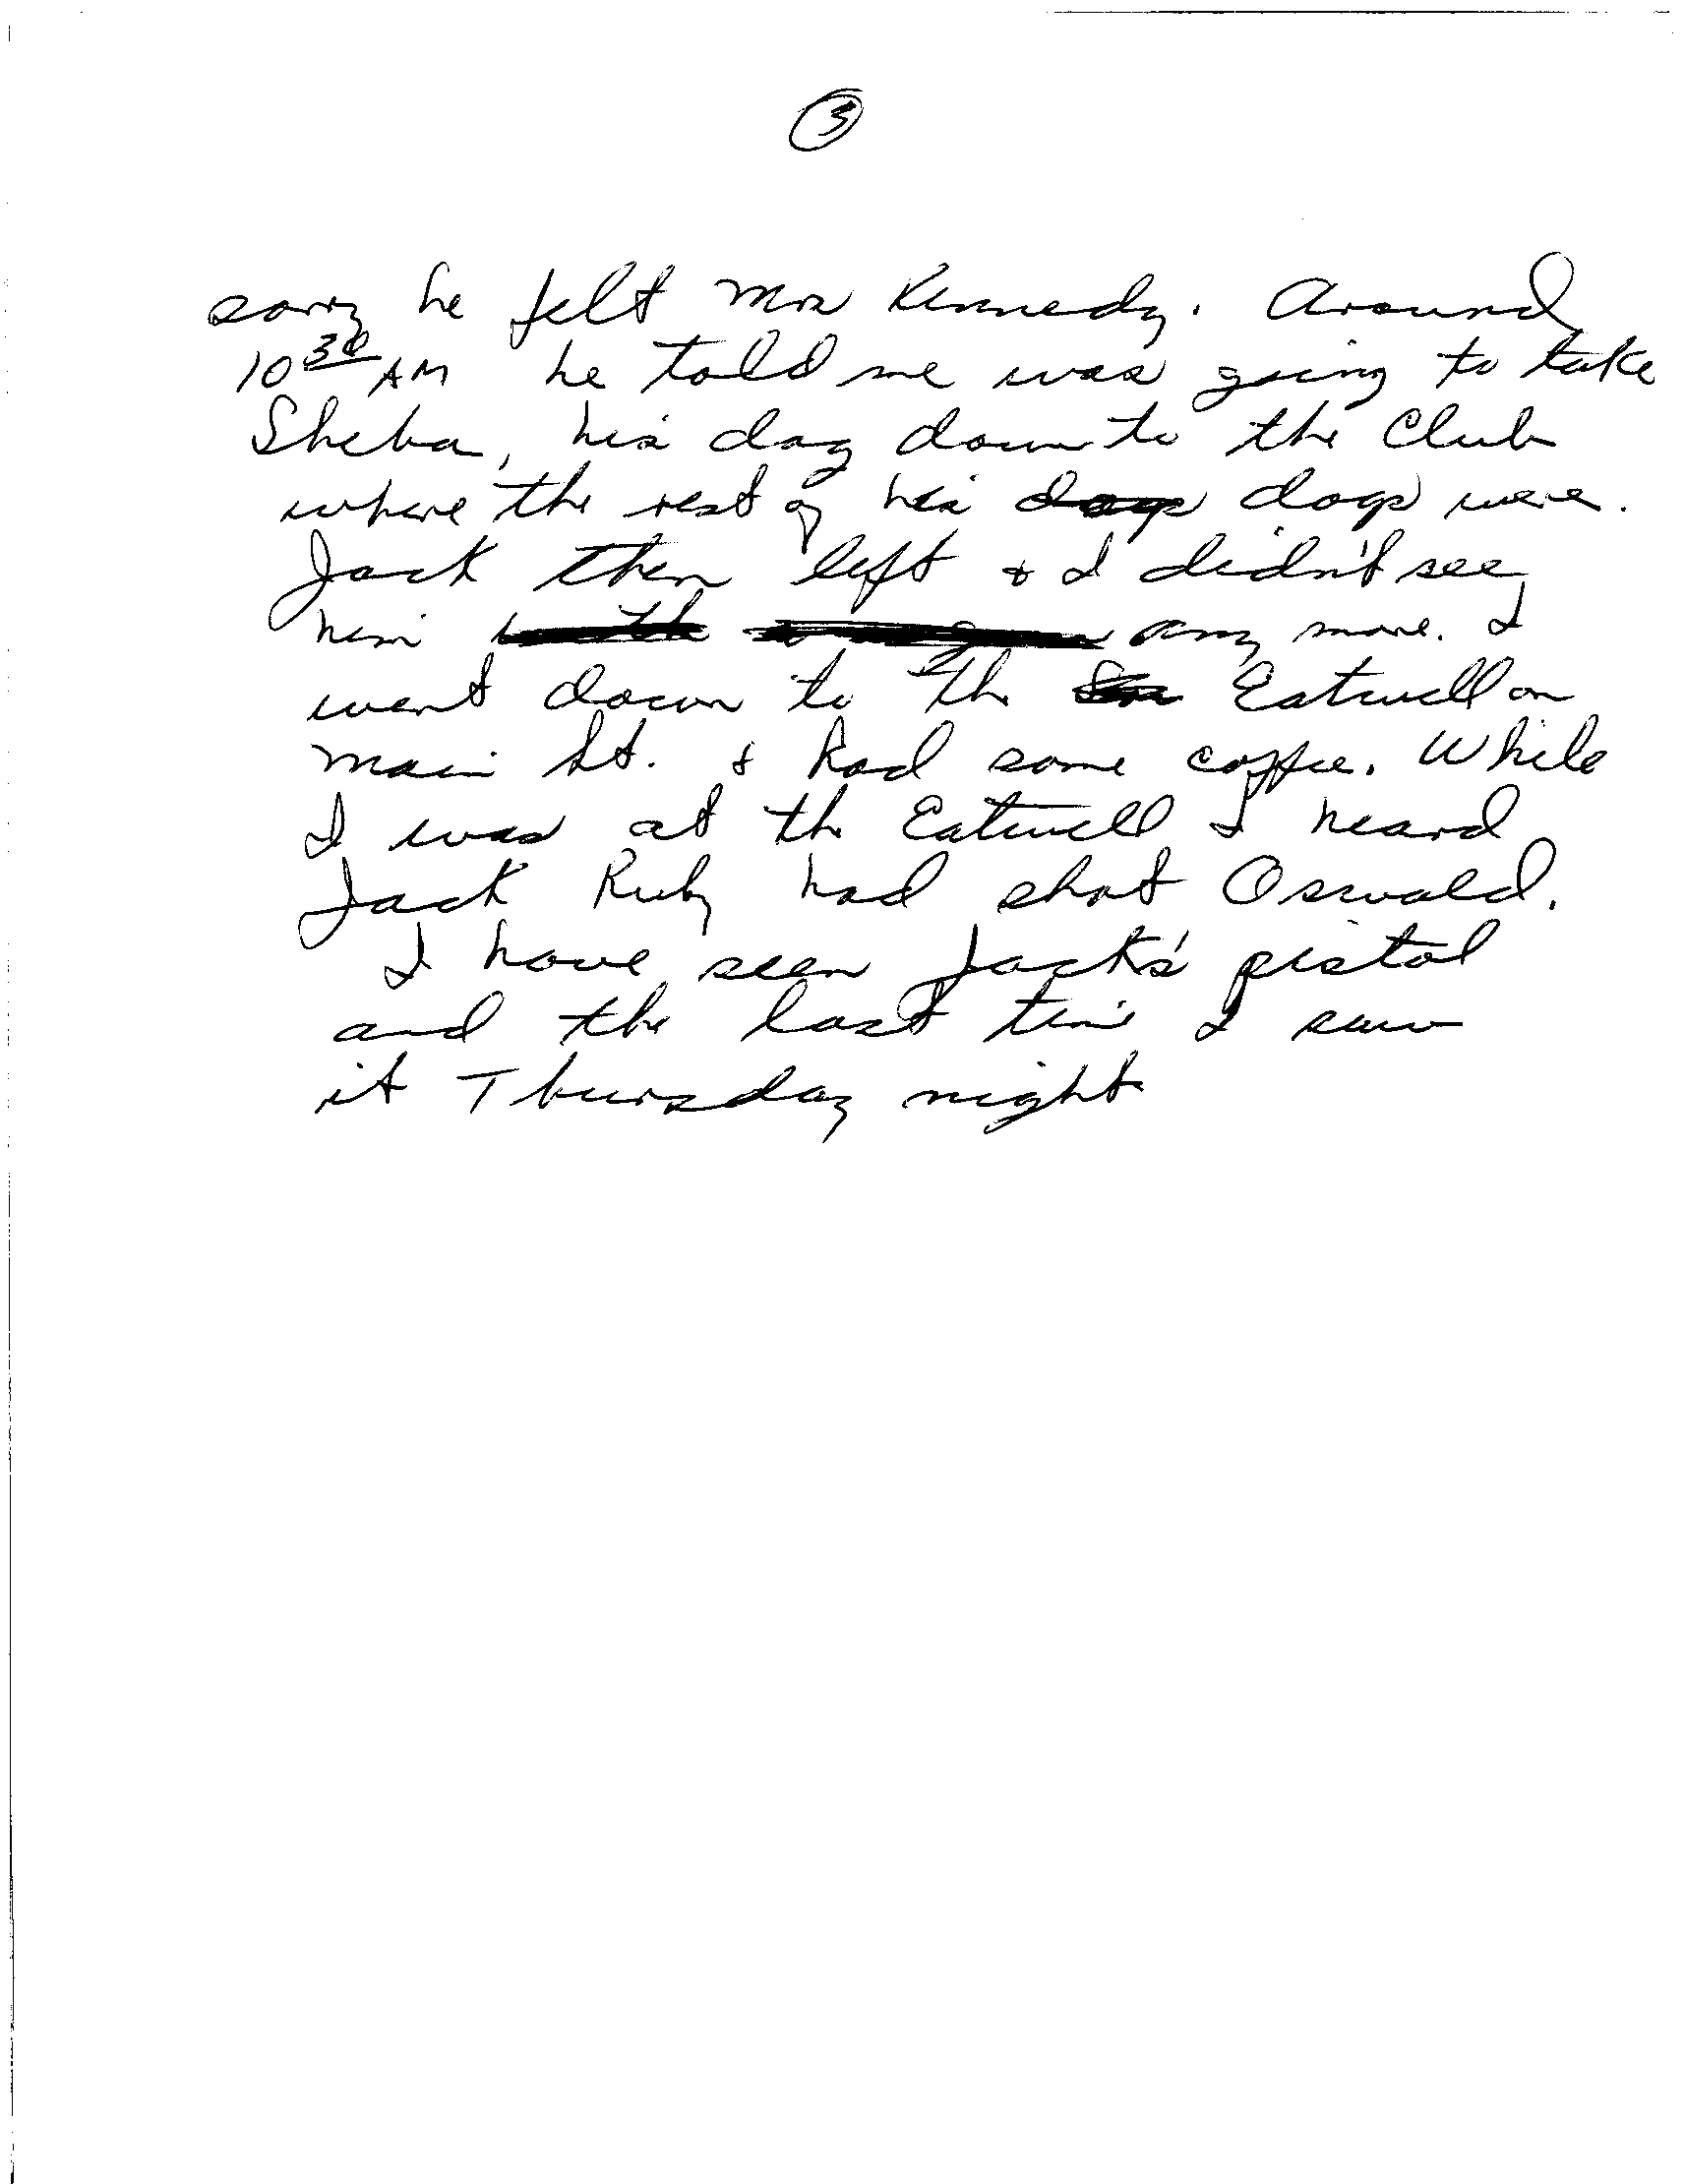 3
sorry he felt Mrs Kennedy. Around
10 30 AM he told me was going to take
Sheba, his dog down to the Club
where the rest of his dogs dogs were.
Jack then left & I didn't see
him any more. I
went down to the Eatwell on
Main St. & had some coffee. While
I was at the Eatwell I heard
Jack Ruby had shot Oswald.
I have seen Jack's pistol
and the last time I saw
it Thursday night